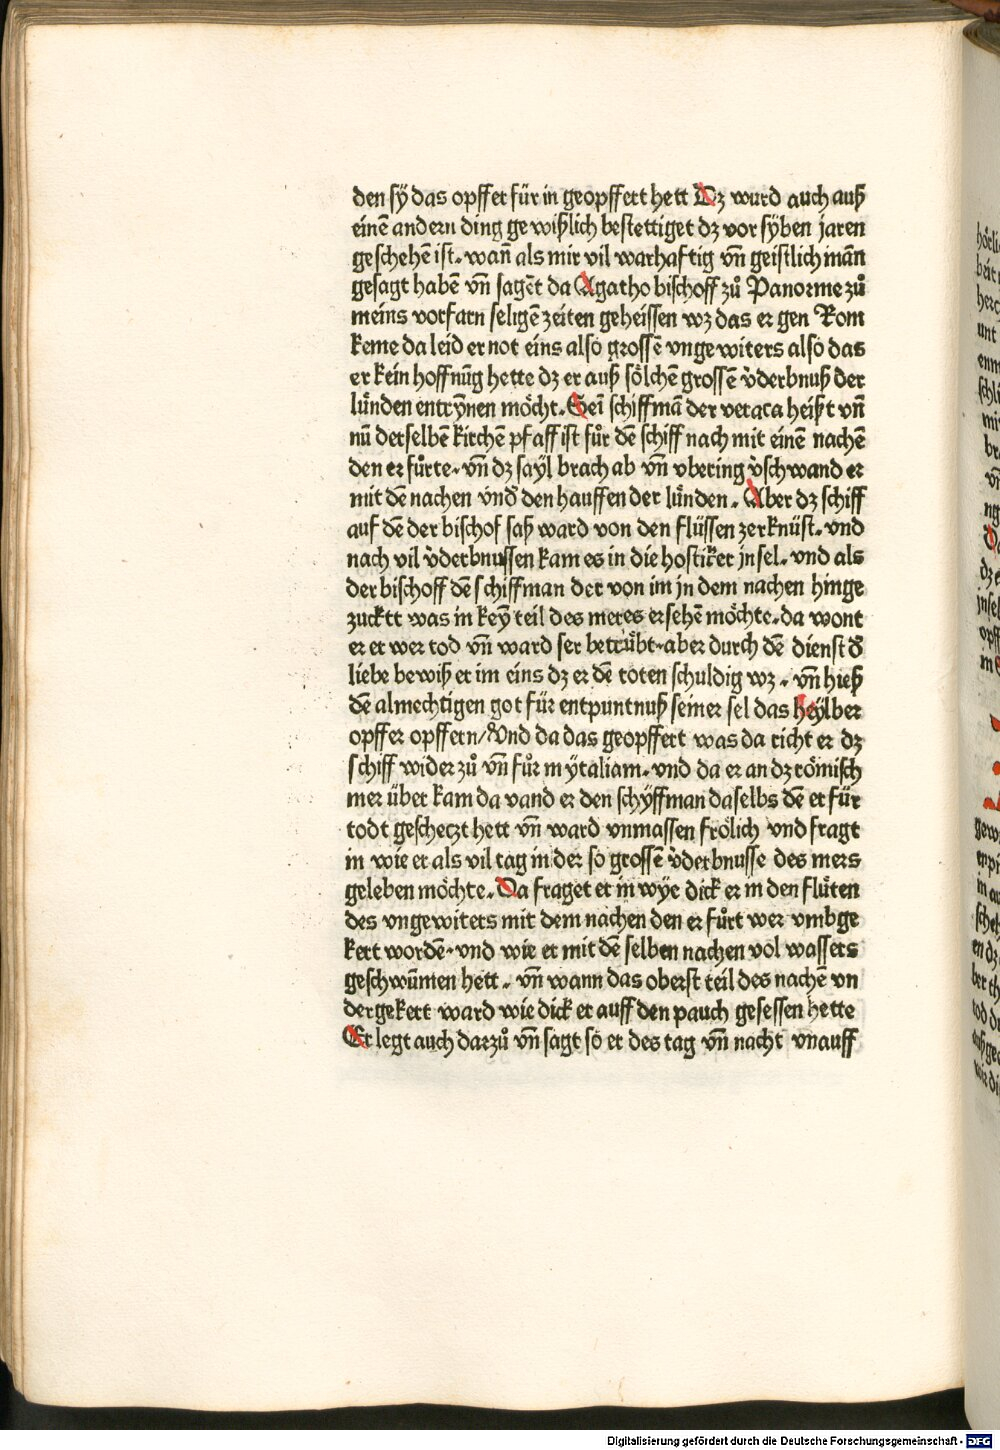 den sy̎ das opffer für in geopffert hett Dz wurd auch auß
einē andern ding gewißlich bestettiget dz vor sy̎ben jaren
geschehē ist. wañ als mir vil warhaftig vñ geistlich mān
gesagt habē vñ sagēt da Agatho bischoff zů Panorme zů
meins vorfarn seligē zeiten geheissen wz das er gen Rom
keme da leid er not eins also grossē vngewiters also das
er kein hoffnūg hette dz er auß sölchē grossē v̓derbnuß der
lu̎nden entrȳnen möcht. Sei schiffmā der veraca heißt vñ
nū derselben kirchē pfaff ist fůr dē schiff nach mit einē nachē
den er fůrte. vñ dz sayl brach ab vñ vbering v̓schwand er
mit dē nachen vndđ den hauffen der lu̎nden. Aber dz schiff
auf dē der bischof saß ward von den flüssen zerknüst. vnd
nach vil v̓derbnussen kam es in die hostiker jnsel. vnd als
der bischoff dē schiffman der von im jn dem nachen hinge
zucktt was in key̎ teil des meres ersehē möchte. da wont
er er wer tod vñ ward ser betrübt. aber durch dē dienst đ
liebe bewiß er im eins dz er dē toten schuldig wz . vñ hieß
dē almechtigen got für entpuntnuß seiner sel das hey̎lber
opffer opffern/ Vnd da das geopffert was da richt er dz
schiff wider zů vñ fůr in y̎taliam. vnd da er an dz römisch
mer über kam da vand er den schy̎ffman daselbs dē er für
todt geschetzt hett vñ ward vnmassen frölich vnd fragt
in wie er als vil tag in der so grossē v̓derbnusse des mers
geleben möchte. Da fraget er in wy̎e dick er in den flůten
des vngewiters mit dem nachen den er fůrt wer vmbge
kert wordē. vnd wie er mit dē selben nachen vol wassers
geschwūmen hett . vñ wann das oberst teil des nachē vn
dergekert ward wie dick er auff den pauch gesessen hette
Er legt auch darzů vñ sagt so er des tag vñ nacht vnauff
Digitalisierung gefördert durch die Deutsche Forschungsgemeinschaft - DFG